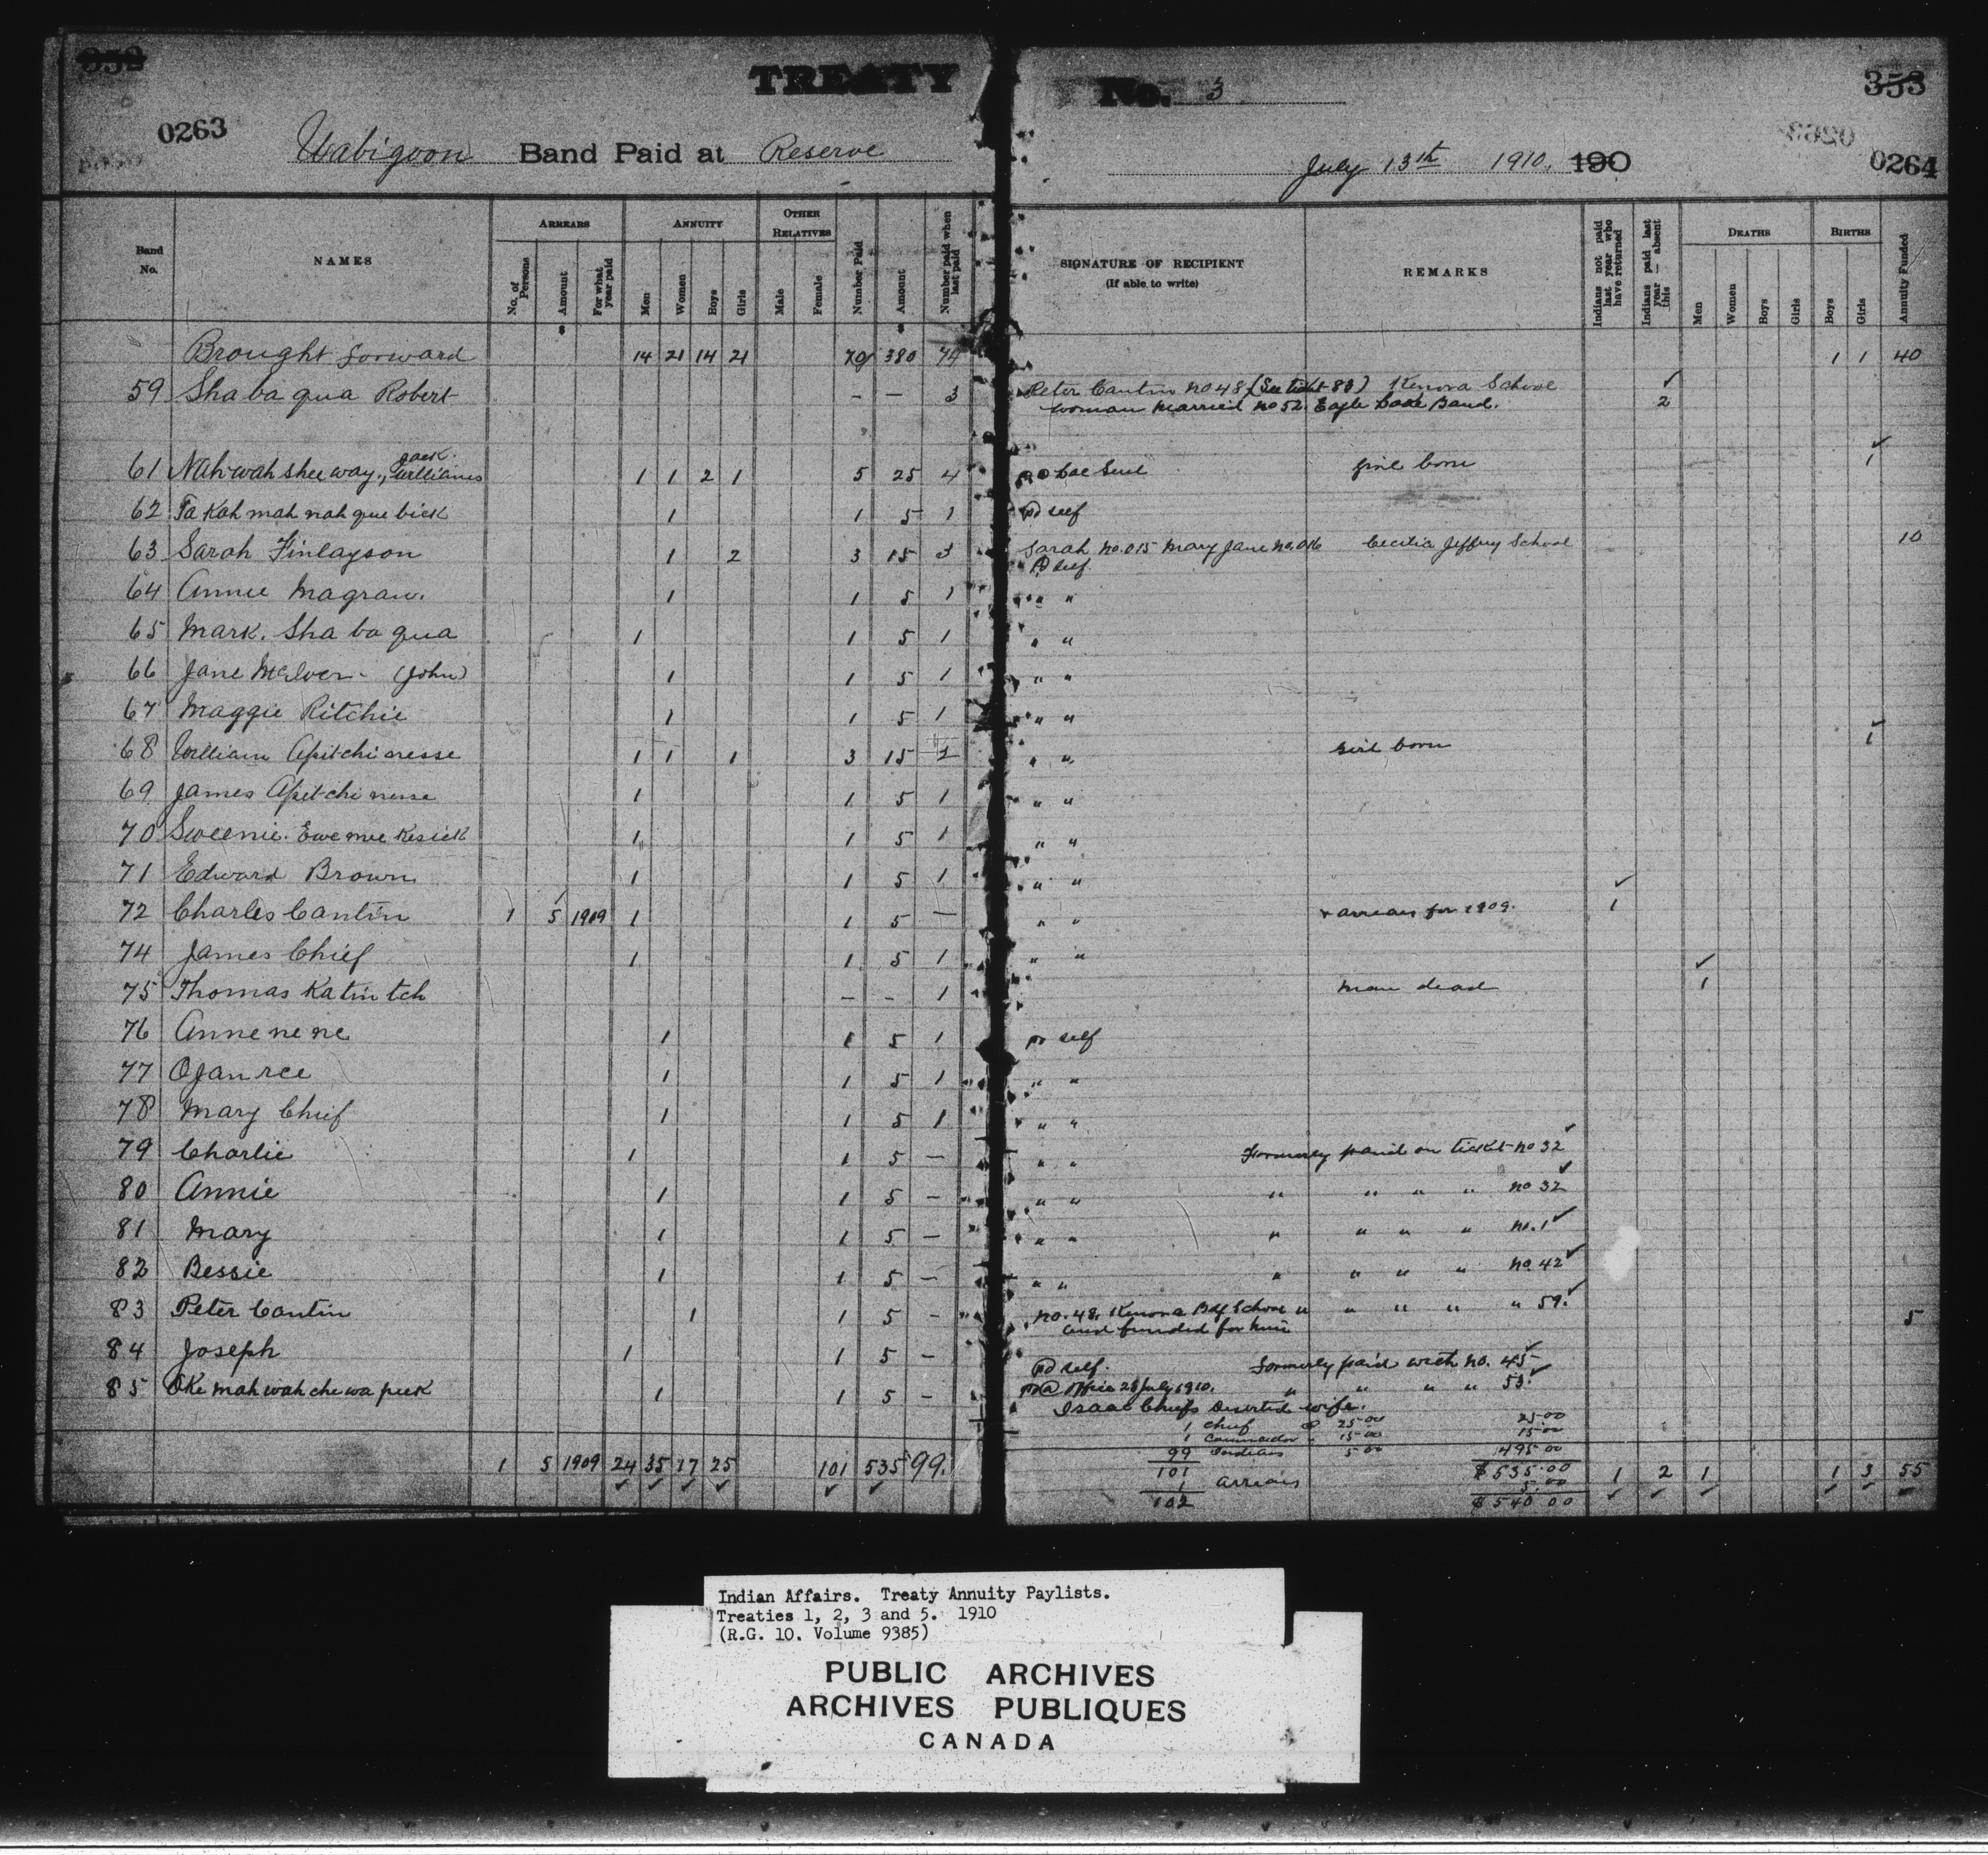 352
353
TREATY No. 3
0263
0264
Wabigoon Band Paid at Reserve July 13th 1910. 190
Band No. NAMES ARREARS No. of Persons Amount For what year paid ANNUITY Men Women Boys Girls OTHER RELATIVES Male Female Number Paid Amount Number paid when last paid SIGNATURE OF RECIPIENT (If able to write) REMARKS Indians not paid last year who have returned Indians paid last year — absent this DEATHS Men Women Boys Girls BIRTHS Boys Girls Annuity Funded
Brought forward 14 21 14 21 70 380 74 1 1 40
59 Sha ba qua Robert – — 3 Peter Cantin no 48 (See ticket 83) Kenora School ✓
woman married no 52 Eagle Lake Band. 2
61 Nah-wah shee way, Jack Williams 1 1 2 1 5 25 4 Lac Seul girl born ✓ 1
62 Ta Kah mah nah que bick 1 1 5 1 pd self
63 Sarah Finlayson 1 2 3 15 3 Sarah no. 015 Mary Jane no. 016 Cecilia Jeffrey School 10
pd self
64 Annie Magraw. 1 1 5 1 " "
65 Mark. Sha ba qua 1 1 5 1 " "
66 Jane McIver - (John) 1 1 5 1 " "
67 Maggie Ritchie 1 1 5 1 " "
68 William Apitchinesse 1 1 1 3 15 2 " " girl born ✓ 1
69 James Apitchinesse 1 1 5 1 " "
70 Sweenie. Ewe mee Kesick 1 1 5 1 " "
71 Edward Brown 1 1 5 1 " "
72 Charles Cantin 1 5 1909 1 1 5 — " " + arrears for 1909. ✓ 1
74 James Chief 1 1 5 1 " "
75 Thomas Katin tch – – 1 man dead ✓ 1
76 Anne ne ne 1 1 5 1 pd self
77 Ojan ree 1 1 5 1 " "
78 Mary Chief 1 1 5 1 " "
79 Charlie 1 1 5 – " " Formerly paid on ticket no 32 ✓
80 Annie 1 1 5 – " " " " " " no 32 ✓
81 Mary 1 1 5 – " " " " " " no. 1 ✓
82 Bessie 1 1 5 – " " " " " " no. 42 ✓
83 Peter Cantin 1 1 5 - no. 48, Kenora Bdg School " " " " " 59. ✓ 5
and funded for him
84 Joseph 1 1 5 – pd self. formerly paid with no. 45 ✓
85 Oke mah wah che wa peek 1 1 5 – pd @ office 28 July 1910. " " " " 53. ✓
Isaac Chiefs deserted wife.
1 Chief @ 25.00 25.00
1 Councillor " 15.00 15.00
99 Indians 5.00 495.00
1 5 1909 24 35 17 25 101 535 99. 101 $535.00 1 2 1 1 3 55
1 arrears 5.00
102 $540.00
Indian Affairs. Treaty Annuity Paylists.
Treaties 1, 2, 3 and 5. 1910
(R.G. 10. Volume 9385)
PUBLIC ARCHIVES
ARCHIVES PUBLIQUES
CANADA